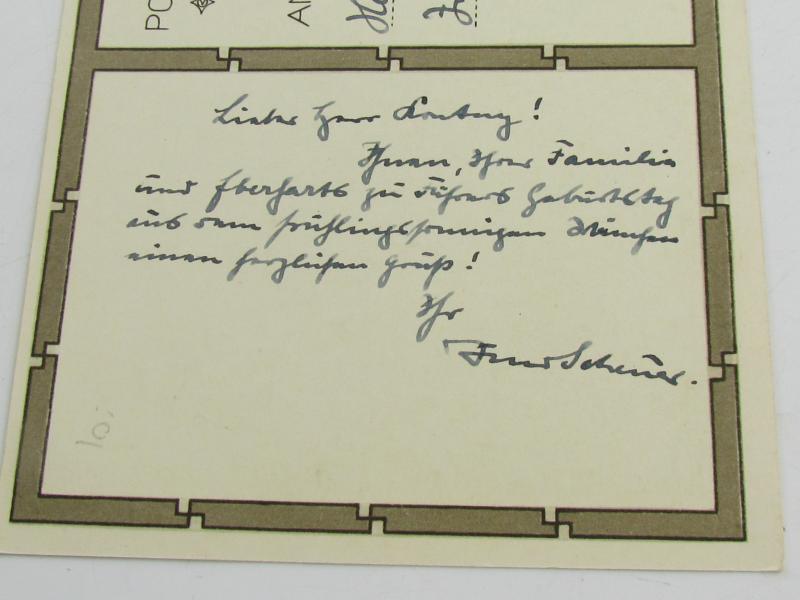 PO
AN
Lieber Herr
Ihnen, Ihrer Familie
und Eberharts zu Führers Geburtstag
aus dem frühlingssonnigen München
einen herzlichen Gruß!
Ihr
Scheuer.